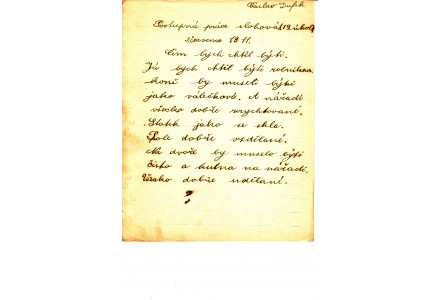 Václav Dufek
Postupná práce slohová (19. úkol)
července 1911.
Čím bych chtěl býti.
Já bych chtěl býti rolníkem,
koně by museli býti
jako válečkové. A nářadí
všecko dobře vzdělané.
Statek jako ze skla.
Pole dobře vzdělané.
Na dvoře by muselo býti
čisto a kůlna na nářadí.
Všecko dobře udělané.